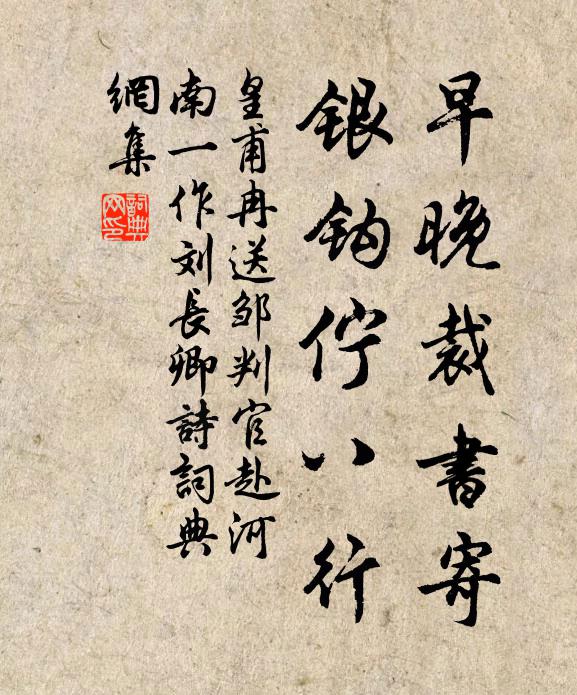 早晚裁書寄
銀鈎佇八行
皇甫冉送邹判官赴河
南一作刘長卿詩詞典
網集
詞典
网印